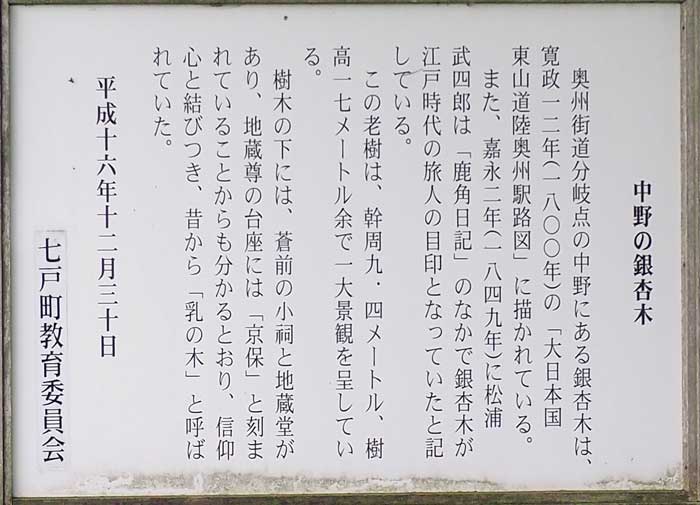 中野の銀杏木
奥州街道分岐点の中野にある銀杏木は、
寛政一二年(一八〇〇年)の「大日本国
東山道陸奥州駅路図」に描かれている。
また、嘉永二年(一八四九年)に松浦
武四郎は「鹿角日記」のなかで銀杏木が
江戸時代の旅人の目印となっていたと記
している。
この老樹は、幹周九．四メートル、樹
高一七メートル余で一大景観を呈してい
る。
樹木の下には、蒼前の小祠と地蔵堂が
あり、地蔵尊の台座には「京保」と刻ま
れていることからも分かるとおり、信仰
心と結びつき、昔から「乳の木」と呼ば
れていた。
平成十六年十二月三十日
七戸町教育委員会